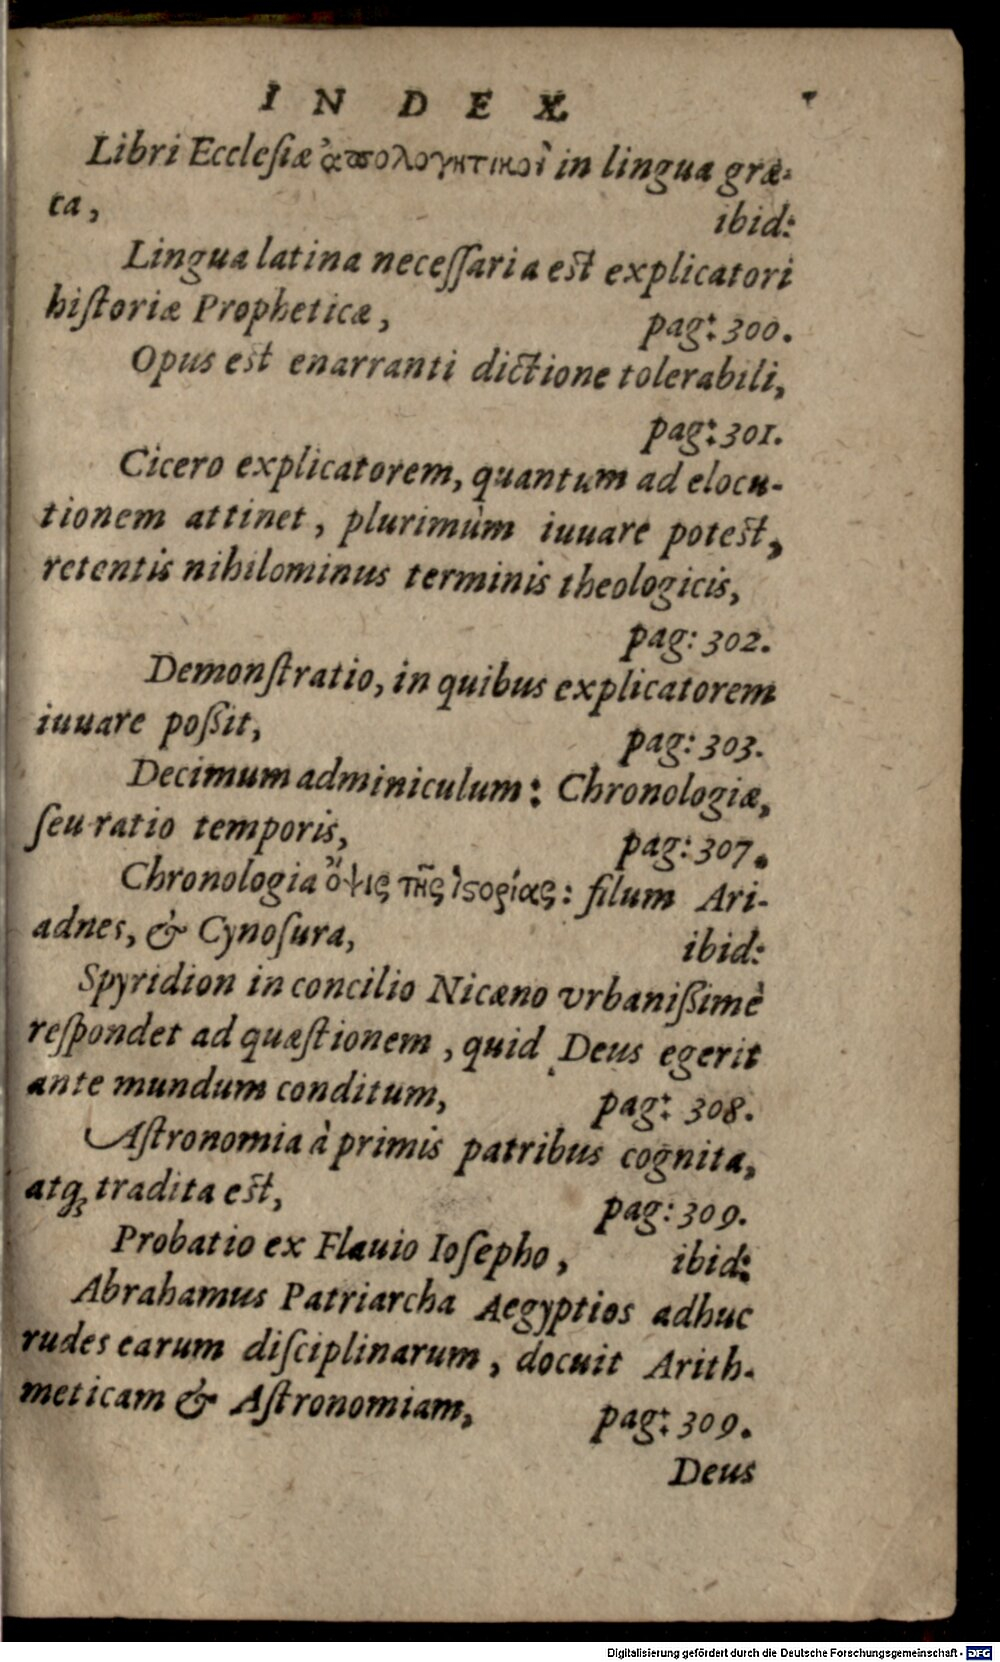 INDEX
Libri Ecclesiæ ἀπολογητικοὶ in lingua græ-
ca, ibid:
Lingua latina necessaria est explicatori
historiæ Propheticæ, pag: 300.
Opus est enarranti dictione tolerabili,
pag: 301.
Cicero explicatorem, quantum ad elocu-
tionem attinet, plurimùm iuuare potest,
retentis nihilominus terminis theologicis,
pag: 302.
Demonstratio, in quibus explicatorem
iuuare poßit, pag: 303.
Decimum adminiculum: Chronologiæ,
seu ratio temporis, pag: 307.
Chronologia ὄψις τῆς ἱϛορίας: filum Ari-
adnes, & Cynosura, ibid:
Spyridion in concilio Nicæno vrbanißimè
respondet ad quæstionem, quid Deus egerit
ante mundum conditum, pag: 308.
Astronomia à primis patribus cognita,
atq; tradita est, pag: 309.
Probatio ex Flauio Iosepho, ibid:
Abrahamus Patriarcha Aegyptios adhuc
rudes earum disciplinarum, docuit Arith-
meticam & Astronomiam, pag: 309.
Deus
Digitalisierung gefördert durch die Deutsche Forschungsgemeinschaft - DFG